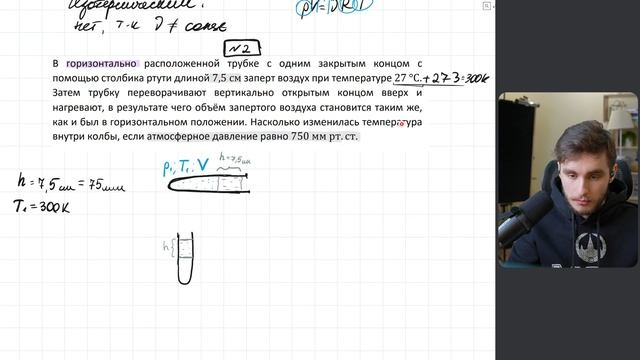 изотермический.
нет, т.к ν ≠ const
pV=νRT
№2
В горизонтально расположенной трубке с одним закрытым концом с
помощью столбика ртути длиной 7,5 см заперт воздух при температуре 27 °C. +273=300K
Затем трубку переворачивают вертикально открытым концом вверх и
нагревают, в результате чего объём запертого воздуха становится таким же,
как и был в горизонтальном положении. Насколько изменилась температура
внутри колбы, если атмосферное давление равно 750 мм рт. ст.
p₁; T₁; V
h=7,5см
h=7,5см = 75мм
T₁=300K
h